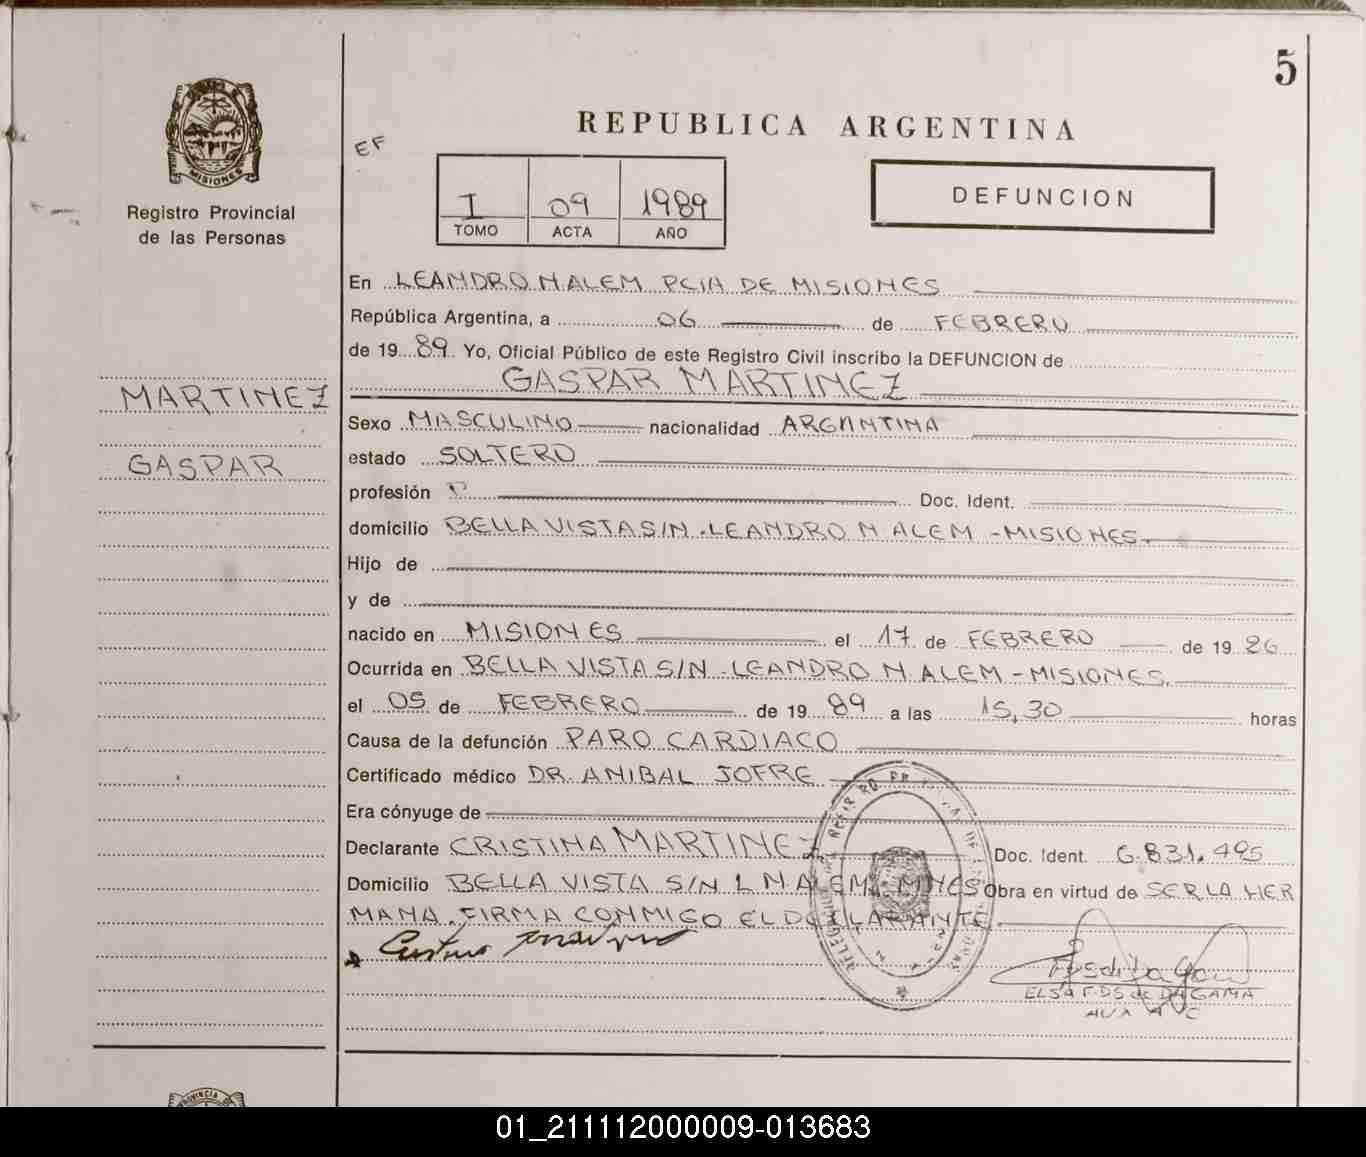 5
REPUBLICA ARGENTINA
EF
MISIONES
Registro Provincial
de las Personas
I 09 1989
TOMO ACTA AÑO
DEFUNCION
MARTINEZ
GASPAR
En LEANDRO N ALEM PCIA DE MISIONES
República Argentina, a 06 de FEBRERO
de 19 89 Yo, Oficial Público de este Registro Civil inscribo la DEFUNCION de
GASPAR MARTINEZ
Sexo MASCULINO nacionalidad ARGENTINA
estado SOLTERO
profesión Doc. Ident.
domicilio BELLA VISTA S/N . LEANDRO N ALEM - MISIONES.
Hijo de
y de
nacido en MISIONES el 17 de FEBRERO de 19 26
Ocurrida en BELLA VISTA S/N - LEANDRO N ALEM - MISIONES.
el 05 de FEBRERO de 19 89 a las 15,30 horas
Causa de la defunción PARO CARDIACO
Certificado médico DR. ANIBAL JOFRE
Era cónyuge de
Declarante CRISTINA MARTINEZ Doc. Ident. 6.831.495
Domicilio BELLA VISTA S/N L N ALEM. MNES Obra en virtud de SER LA HER
MANA. FIRMA CONMIGO EL DECLARANTE.
ELSA F. DS de DA GAMA
AUX A C
PROVINCIA
01_211112000009-013683